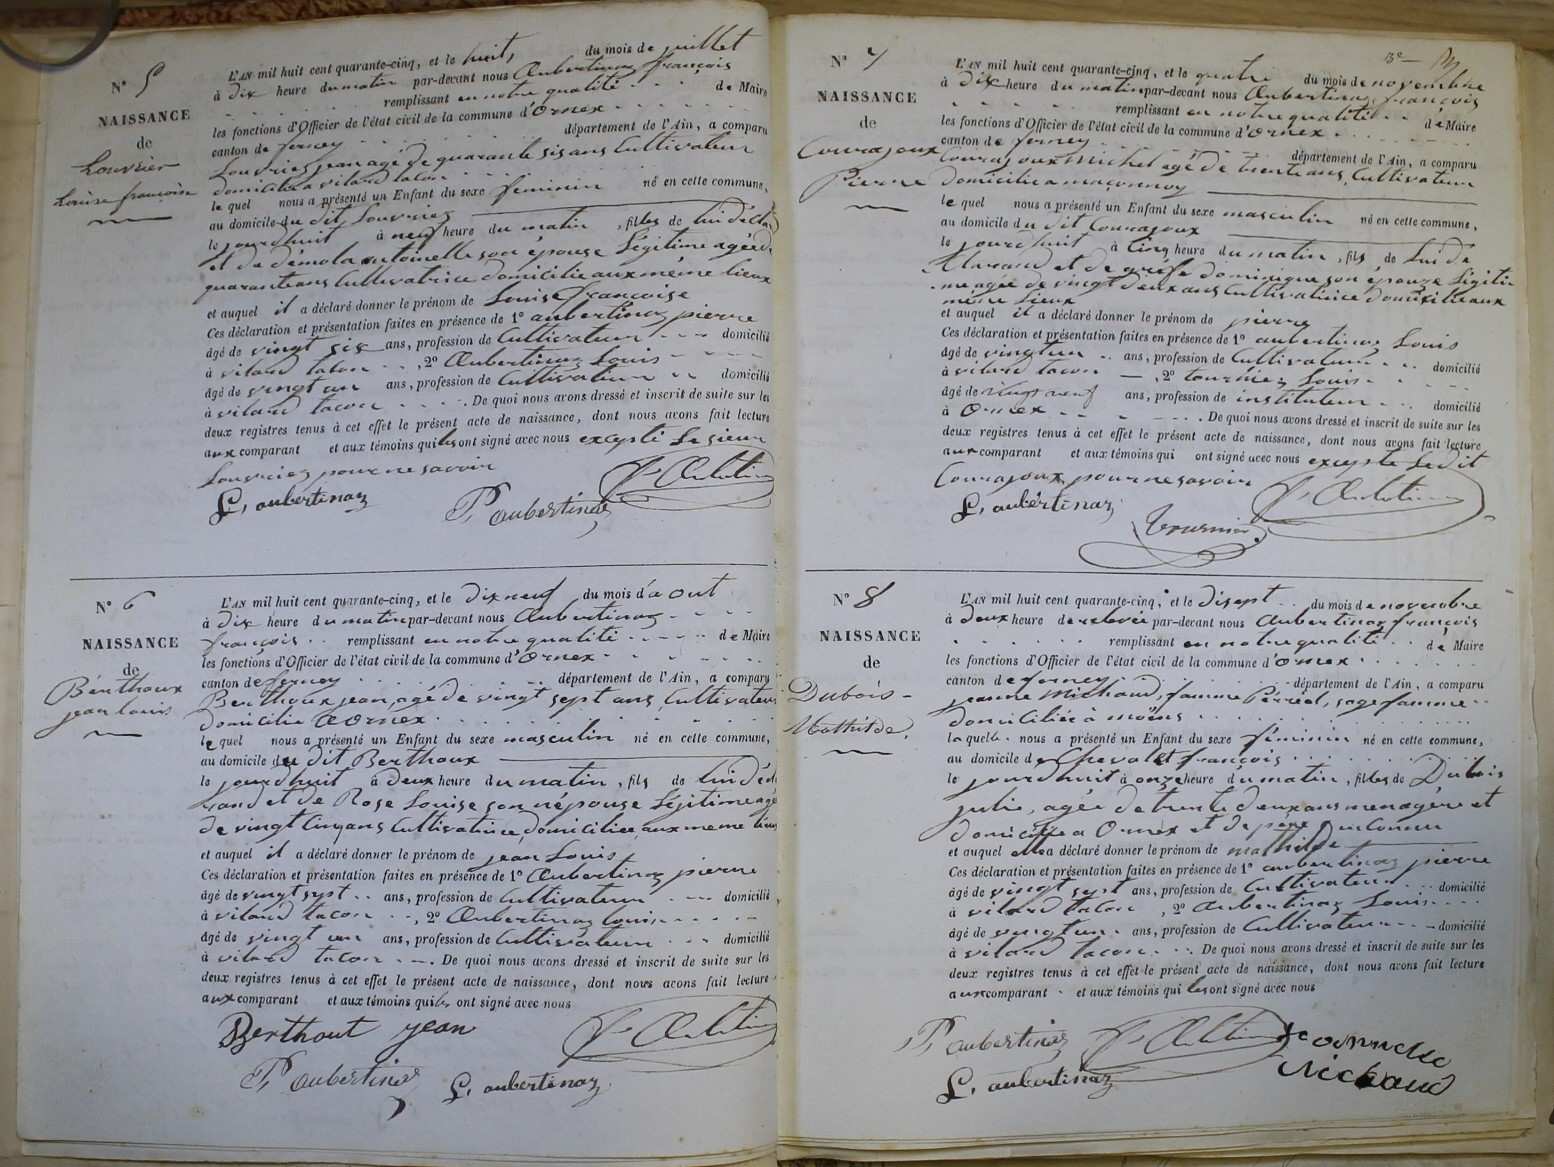 N° 5
NAISSANCE
de
Louvrier
Louise françoise
L'AN mil huit cent quarante-cinq, et le huit, du mois de juillet
à dix heure du matin par-devant nous Aubertinaz françois
remplissant en notre qualité de Maire
les fonctions d'Officier de l'état civil de la commune d'Ornex
canton de ferney département de l'Ain, a comparu
Louvrier jean agé de quarante six ans Cultivateur
domicilié a vilard tacon
le quel nous a présenté un Enfant du sexe féminin né en cette commune,
au domicile du dit Louvrier
le jourdhuit à neuf heure du matin, filles de lui décla
et de démola antoinelle son épouse Légitime agée de
quarante ans Cultivatrice domicilie aux même lieux
et auquel il a déclaré donner le prénom de Louise françoise
Ces déclaration et présentation faites en présence de 1° aubertinaz pierre
âgé de vingt six ans, profession de Cultivateur domicilié
à vilard tacon, 2° Aubertinaz Louis
âgé de vingt un ans, profession de Cultivateur domicilié
à vilard tacon. De quoi nous avons dressé et inscrit de suite sur les
deux registres tenus à cet effet le présent acte de naissance, dont nous avons fait lecture
aux comparant et aux témoins qui les ont signé avec nous excepté Le sieur
Louvriez pour ne savoir
L, aubertinaz P aubertinaz
N° 6
NAISSANCE
de
Berthoux
jean louis
L'AN mil huit cent quarante-cinq, et le dix neuf du mois d'a out
à dix heure du matin par-devant nous Aubertinaz
françois remplissant en notre qualité de Maire
les fonctions d'Officier de l'état civil de la commune d'Ornex
canton de ferney département de l'Ain, a comparu
Berthoux jean, agé de vingt sept ans, Cultivateur
domicilié a Ornex
le quel nous a présenté un Enfant du sexe masculin né en cette commune,
au domicile du dit Berthoux
le jourdhuit à deux heure du matin, fils de lui décl
rand et de Rose Louise son népouse Légitime agé
de vingt Cinq ans Cultivatrice domiciliée, aux meme lieux
et auquel il a déclaré donner le prénom de jean Louis
Ces déclaration et présentation faites en présence de 1° Aubertinaz pierre
âgé de vingt sept ans, profession de Cultivateur domicilié
à vilard tacon, 2° Aubertinaz louis
âgé de vingt un ans, profession de Cultivateur domicilié
à vilard tacon. De quoi nous avons dressé et inscrit de suite sur les
deux registres tenus à cet effet le présent acte de naissance, dont nous avons fait lecture
aux comparant et aux témoins qui les ont signé avec nous
Berthout jean
P aubertinaz L, aubertinaz
N° 7
NAISSANCE
de
Courajoux
Pierre
L'AN mil huit cent quarante-cinq, et le quatre du mois de novembre
à dix heure du matin par-devant nous Aubertinaz françois
remplissant en notre qualité de Maire
les fonctions d'Officier de l'état civil de la commune d'Ornex
canton de ferney département de l'Ain, a comparu
Courajoux Michel agé de trente ans, Cultivateur
domicilié a maconnex
le quel nous a présenté un Enfant du sexe masculin né en cette commune,
au domicile du dit Courajoux
le jourdhuit à Cinq heure du matin, fils de Lui dé
Clarand et de dominique son épouze Légiti
me agée de vingt deux ans Cultivatrice domicilié aux
même Lieux
et auquel il a déclaré donner le prénom de pierre
Ces déclaration et présentation faites en présence de 1° aubertinaz Louis
âgé de vingt un ans, profession de Cultivateur domicilié
à vilard tacon, 2° tournier Louis
âgé de vingt neuf ans, profession de instituteur domicilié
à Ornex. De quoi nous avons dressé et inscrit de suite sur les
deux registres tenus à cet effet le présent acte de naissance, dont nous avons fait lecture
aux comparant et aux témoins qui ont signé avec nous excepte Le dit
Courajoux pour ne savoir
L, aubertinaz Tournier
N° 8
NAISSANCE
de
Dubois
Mathilde
L'AN mil huit cent quarante-cinq, et le disept du mois de novembre
à deux heure de relevée par-devant nous Aubertinaz françois
remplissant en notre qualité de Maire
les fonctions d'Officier de l'état civil de la commune d'ornex
canton de ferney département de l'Ain, a comparu
jeanne Michaud, famme Perréal, sage famme
domiciliée à moëns
la quelle nous a présenté un Enfant du sexe féminin né en cette commune,
au domicile de Chevalet françois
le jourdhuit à onze heure du matin, filles de Dubois
julie, agée de trente deux ans menagère et
domicilié a Ornex et de père inconnu
et auquel elle a déclaré donner le prénom de mathilde
Ces déclaration et présentation faites en présence de 1° aubertinaz pierre
âgé de vingt sept ans, profession de Cultivateur domicilié
à vilard tacon, 2° aubertinaz Louis
âgé de vingt un ans, profession de Cultivateur domicilié
à vilard tacon. De quoi nous avons dressé et inscrit de suite sur les
deux registres tenus à cet effet le présent acte de naissance, dont nous avons fait lecture
aux comparant et aux témoins qui les ont signé avec nous
P aubertinaz
L, aubertinaz